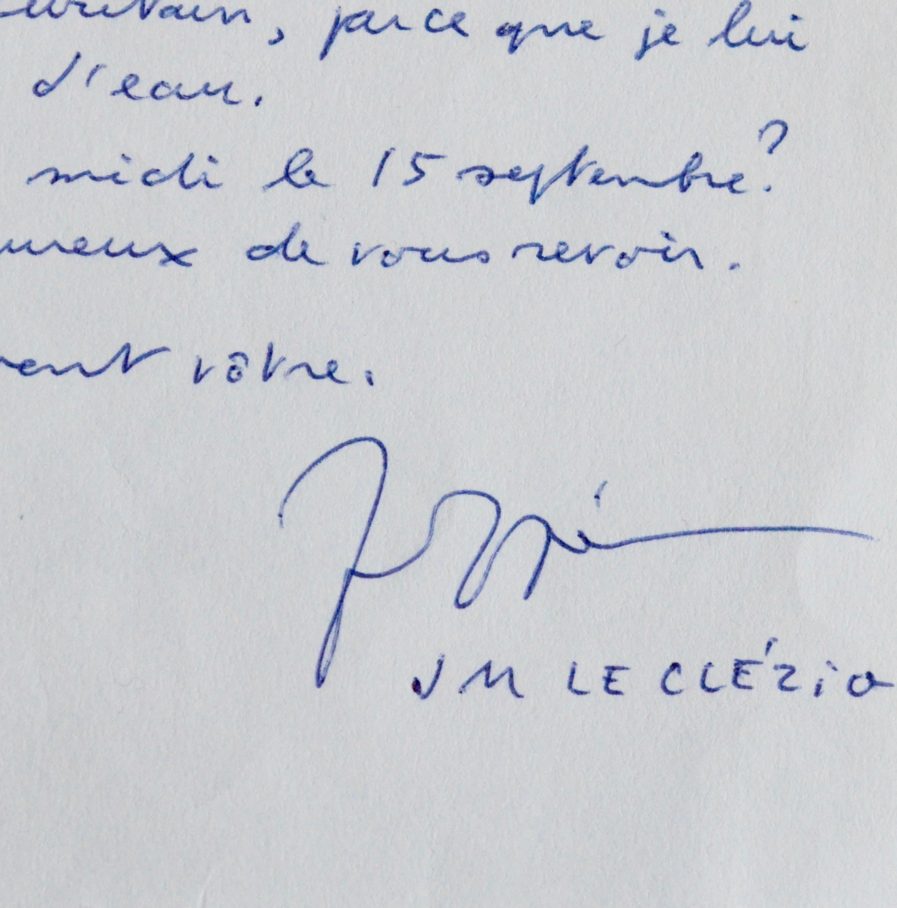 parce que je lui
d'eau.
midi le 15 septembre?
ureux de vous revoir.
vôtre.
JM LE CLÉZIO